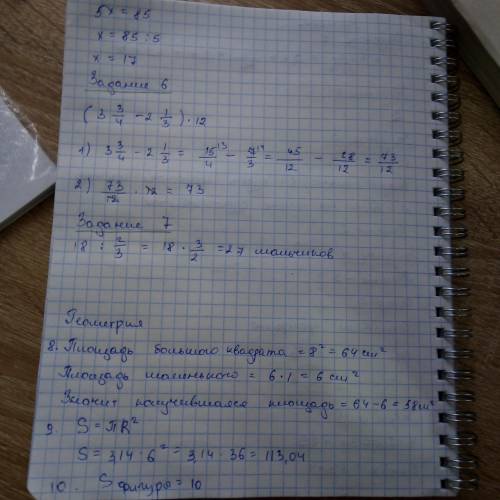 5x = 85
x = 85 : 5
x = 17
Задание 6
(3 3/4 - 2 1/3) · 12
1) 3 3/4 - 2 1/3 = 15/4 - 7/3 = 45/12 - 28/12 = 73/12
2) 73/12 · 12 = 73
Задание 7
18 : 2/3 = 18 · 3/2 = 27 мальчиков
Геометрия
8. Площадь большого квадрата = 8² = 64 см²
Площадь маленького = 6 · 1 = 6 см²
Значит получившаяся площадь = 64 - 6 = 58см²
9. S = πR²
S = 3,14 · 6² = 3,14 · 36 = 113,04
10. S фигуры = 10